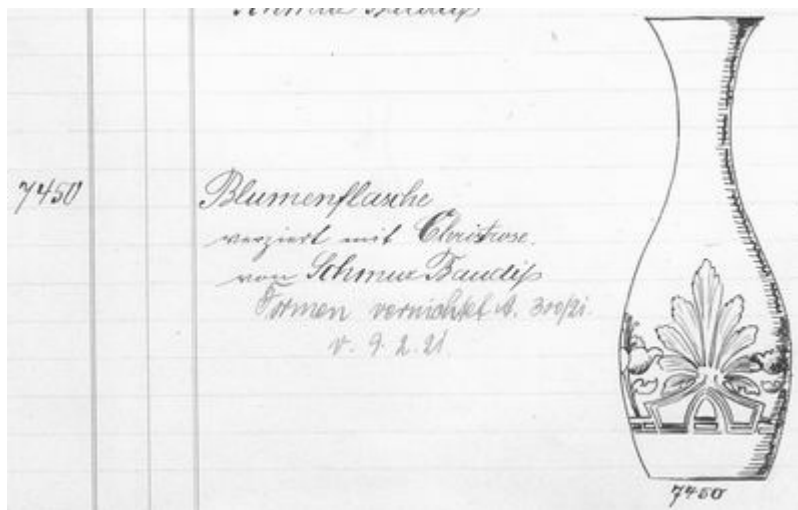 7450
Blumenflasche
verziert mit Christrose.
von Schmuz Baudiß
Formen vernichtet A. 300/21.
v. 9. 2. 21.
7450